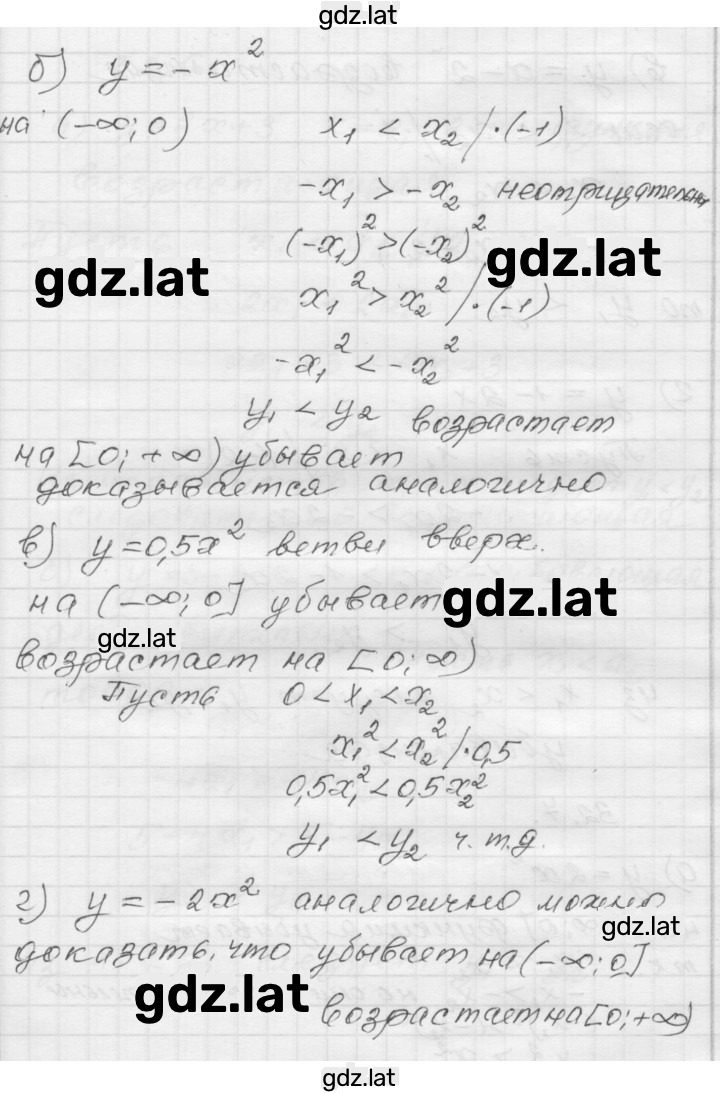 gdz.lat
б) y = - x²
на (-∞; 0) x₁ < x₂ /·(-1)
-x₁ > -x₂ неотрицательны
(-x₁)² > (-x₂)²
gdz.lat
gdz.lat
x₁² > x₂² /·(-1)
-x₁² < -x₂²
y₁ < y₂ возрастает
на [0; +∞) убывает
доказывается аналогично
в) y = 0,5x² ветви вверх.
на (-∞; 0] убывает
gdz.lat
gdz.lat
возрастает на [0; ∞)
Пусть 0 < x₁ < x₂
x₁² < x₂² /·0,5
0,5x₁² < 0,5x₂²
y₁ < y₂ ч.т.д.
г) y = - 2x² аналогично можно
gdz.lat
доказать, что убывает на (-∞; 0]
gdz.lat
возрастает на [0; +∞)
gdz.lat